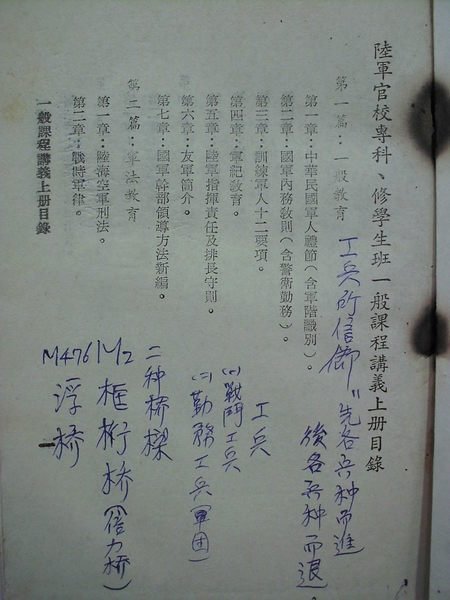 陸軍官校專科、修學生班一般課程講義上册目錄
第一篇：一般教育
第一章：中華民國軍人禮節(含軍階識別)。
第二章：國軍內務教則(含警衛勤務)。
第三章：訓練軍人十二要項。
第四章：軍紀教育。
第五章：陸軍指揮責任及排長守則。
第六章：友軍簡介。
第七章：國軍幹部領導方法新編。
第二篇：軍法教育
第一章：陸海空軍刑法。
第二章：戰時軍律。
一般課程講義上册目錄
一
工兵所信"先各兵种而進
後各兵种而退。
工兵
戰鬥工兵
(二)勤務工兵軍团)
二种桥樑
M2框桁桥(倍力桥)
M4T6浮桥